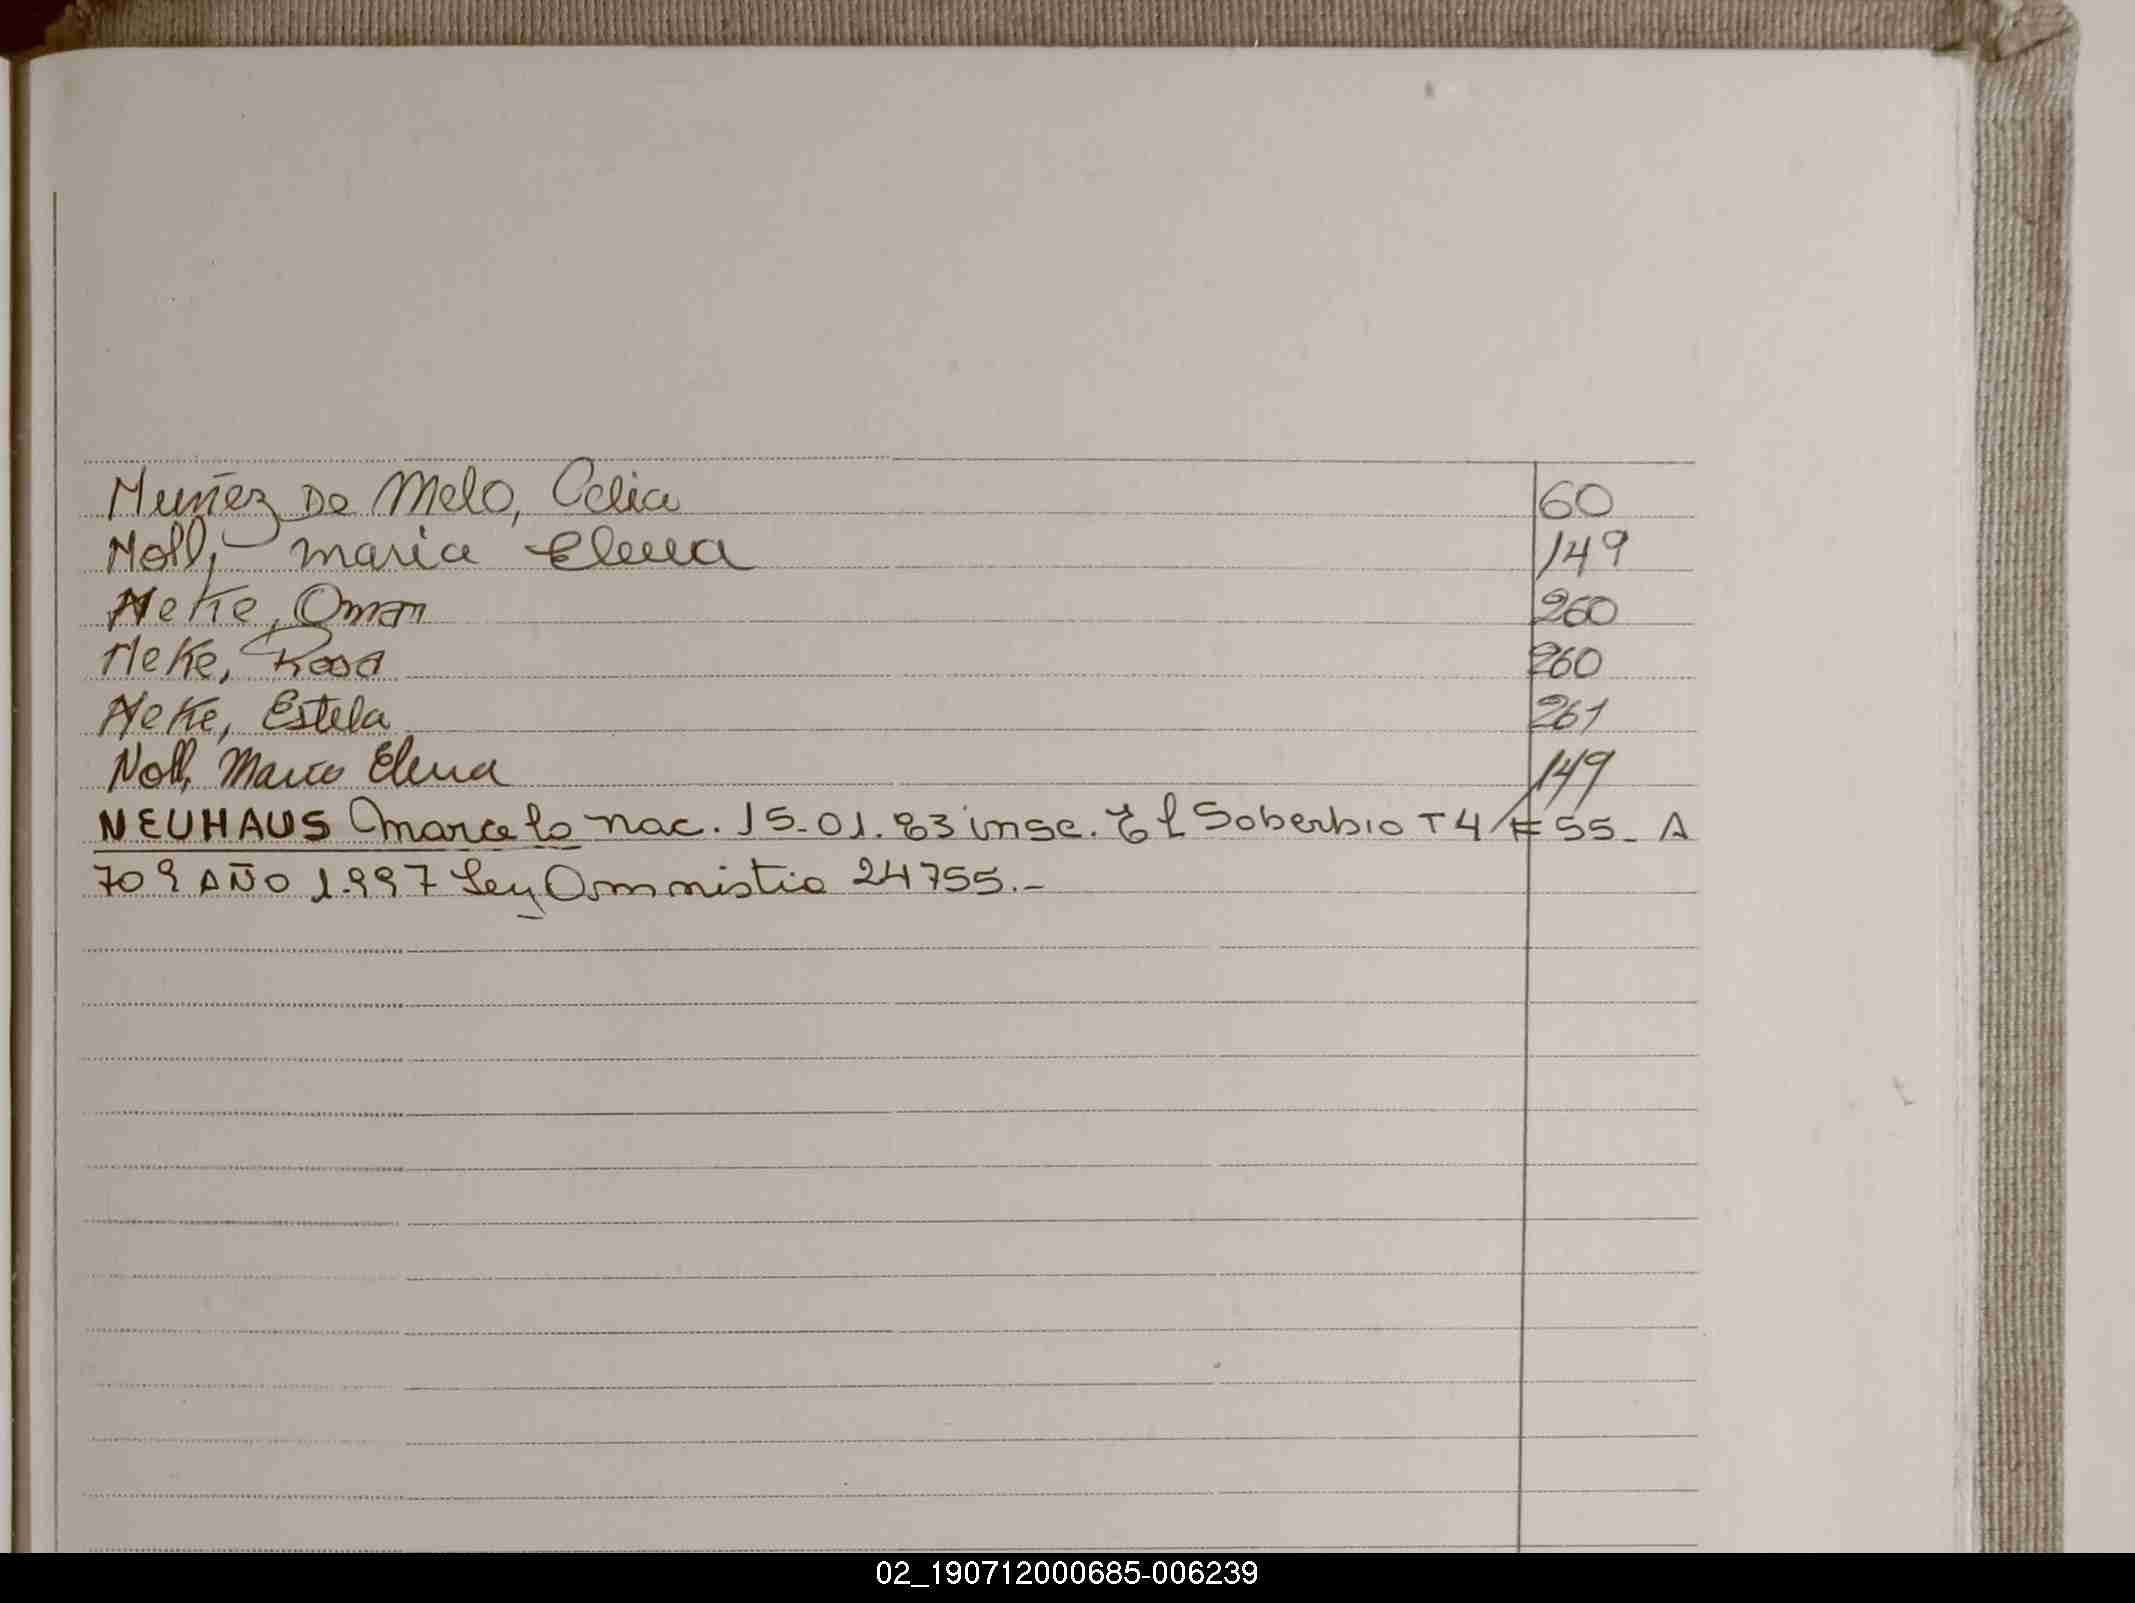 Nuñez De Melo, Celia 60
Noll, Maria Elena 149
Neke, Omar 260
Neke, Rosa 260
Neke, Estela 261
Noll, Maria Elena 149
NEUHAUS Marcelo nac. 15-01.83 insc. El Soberbio T4/F 55- A
709 AÑO 1.997 Ley Amnistia 24755.-
02_190712000685-006239